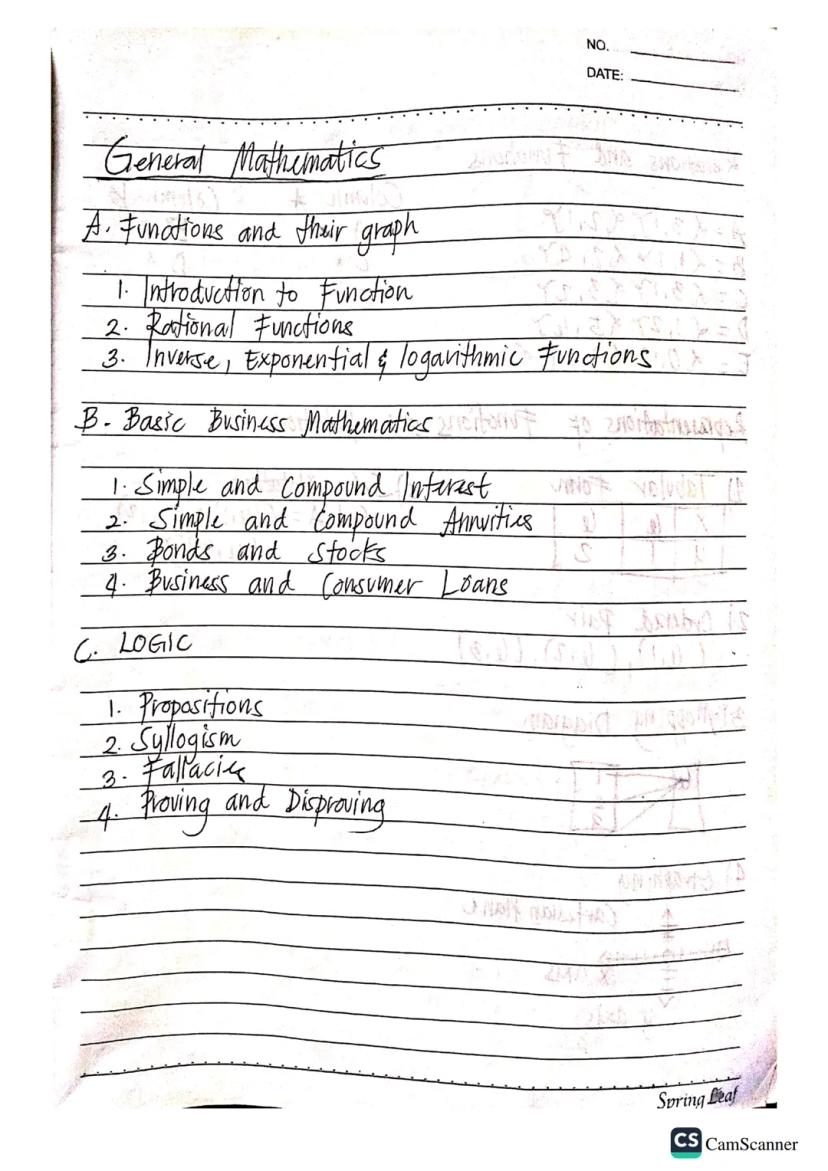 NO.
DATE:
General Mathematics
A. Functions and their graph
1. Introduction to Function
2. Rational Functions
3. Inverse, Exponential & logarithmic Functions
B. Basic Business Mathematics
1. Simple and Compound Interest
2. Simple and Compound Annuities
3. Bonds and Stocks
4. Business and Consumer Loans
C. LOGIC
1. Propositions
2. Syllogism
3. Fallacies
4. Proving and Disproving
Spring Leaf
CS CamScanner